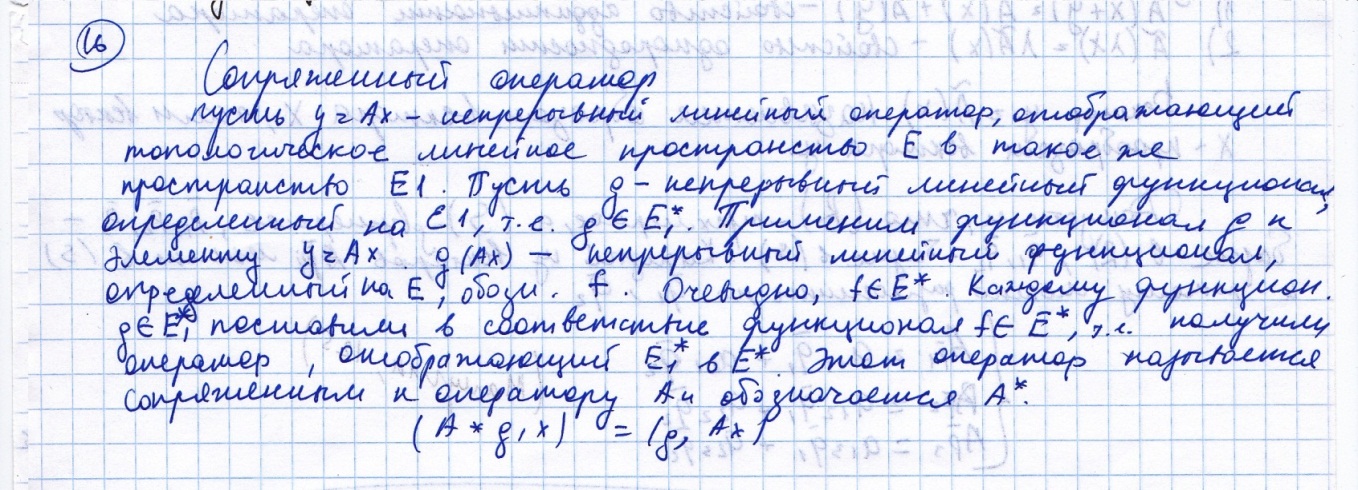 16
Сопряженный оператор
пусть y = Ax – непрерывный линейный оператор, отображающий
топологическое линейное пространство E в такое же
пространство E1. Пусть g – непрерывный линейный функционал,
определенный на E1, т.е. g ∈ E₁*. Применим функционал g к
элементу y = Ax. g(Ax) – непрерывный линейный функционал,
определенный на E, обозн. f. Очевидно, f ∈ E*. Каждому функцион.
g ∈ E₁* поставили в соответствие функционал f ∈ E*, т.е. получили
оператор, отображающий E₁* в E*. Этот оператор называется
сопряженным к оператору A и обозначается A*.
(A*g, x) = (g, Ax)